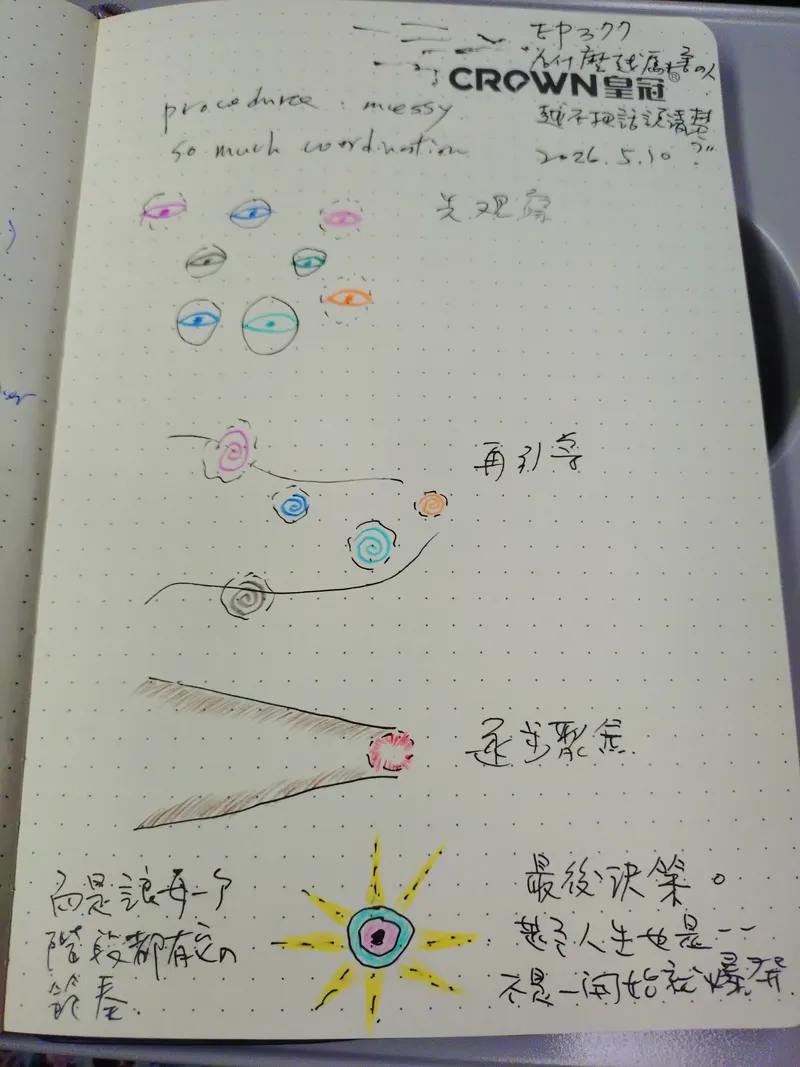 EP377
"為什麼越厲害的人
CROWN皇冠®
越不把話說清楚
?"
2026.5.10
procedurce : muessy
so much coordination
先观察
再引导
逐步聚焦
最後決策。
甚至人生也是——
不是一開始就爆發
而是讓每一个
階段都有它的
節奏.